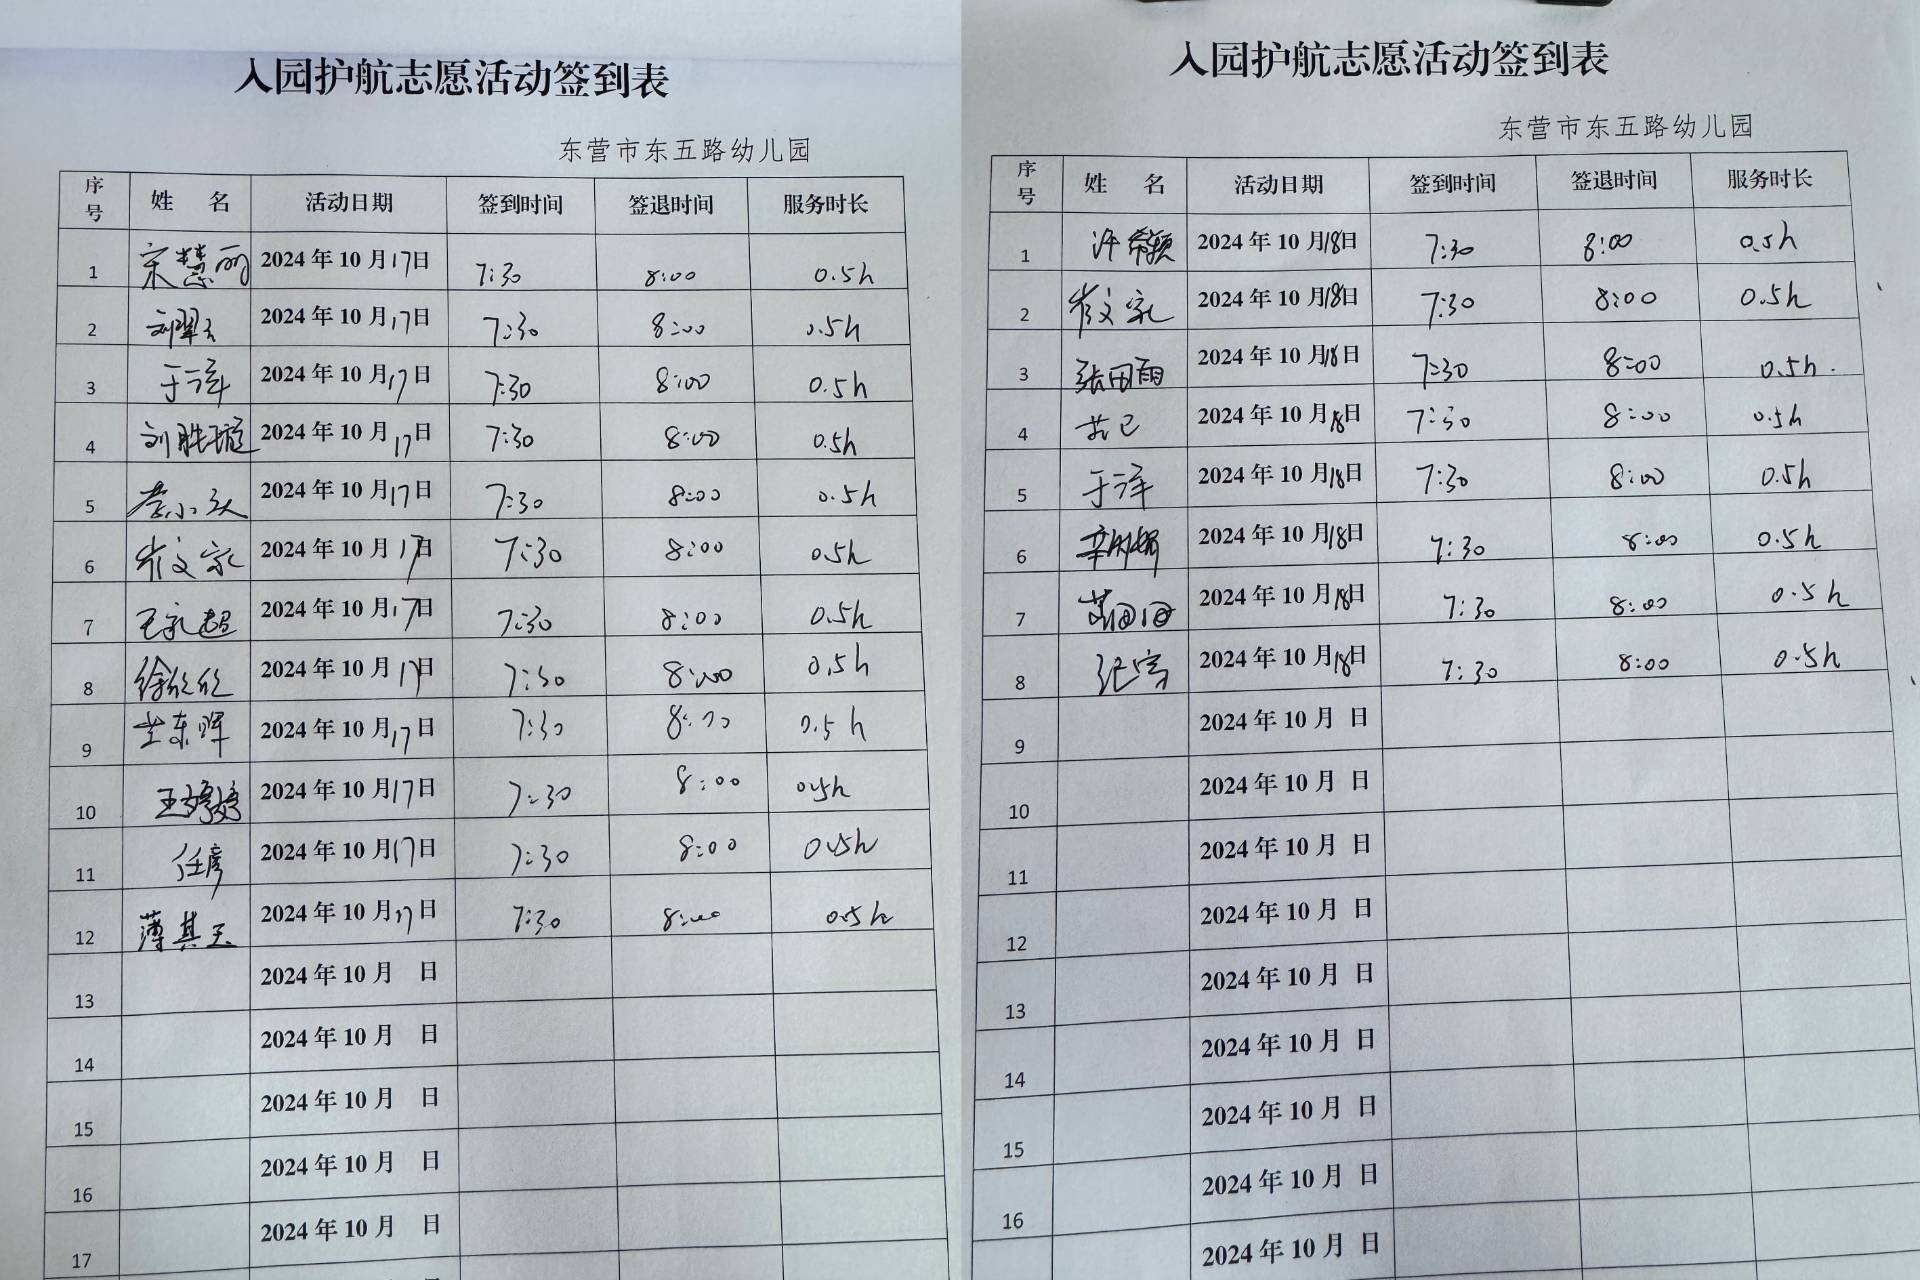 入园护航志愿活动签到表
东营市东五路幼儿园
序号 姓 名 活动日期 签到时间 签退时间 服务时长
1 宋慧丽 2024年10月17日 7:30 8:00 0.5h
2 2024年10月17日 7:30 8:00 0.5h
3 于泽 2024年10月17日 7:30 8:00 0.5h
4 刘胜璇 2024年10月17日 7:30 8:00 0.5h
5 2024年10月17日 7:30 8:00 0.5h
6 崔文家 2024年10月17日 7:30 8:00 0.5h
7 王永超 2024年10月17日 7:30 8:00 0.5h
8 徐欣欣 2024年10月17日 7:30 8:00 0.5h
9 2024年10月17日 7:30 8:00 0.5h
10 王婷婷 2024年10月17日 7:30 8:00 0.5h
11 任彦 2024年10月17日 7:30 8:00 0.5h
12 薄其玉 2024年10月17日 7:30 8:00 0.5h
13 2024年10月 日
14 2024年10月 日
15 2024年10月 日
16 2024年10月 日
17 2024年10月 日
入园护航志愿活动签到表
东营市东五路幼儿园
序号 姓 名 活动日期 签到时间 签退时间 服务时长
1 许希颖 2024年10月18日 7:30 8:00 0.5h
2 崔文家 2024年10月18日 7:30 8:00 0.5h
3 张田雨 2024年10月18日 7:30 8:00 0.5h
4 2024年10月18日 7:30 8:00 0.5h
5 于泽 2024年10月18日 7:30 8:00 0.5h
6 2024年10月18日 7:30 8:00 0.5h
7 2024年10月18日 7:30 8:00 0.5h
8 2024年10月18日 7:30 8:00 0.5h
9 2024年10月 日
10 2024年10月 日
11 2024年10月 日
12 2024年10月 日
13 2024年10月 日
14 2024年10月 日
15 2024年10月 日
16 2024年10月 日
2024年10月 日